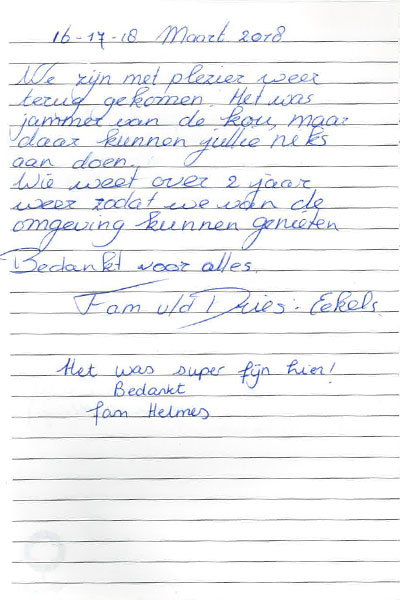 16-17-18 Maart 2018
We zijn met plezier weer
terug gekomen. Het was
jammer van de kou, maar
daar kunnen jullie niks
aan doen.
Wie weet over 2 jaar
weer zodat we van de
omgeving kunnen genieten
Bedankt voor alles.
Fam v/d Dries - Eekels.
Het was super fijn hier!
Bedankt
fam Helmes